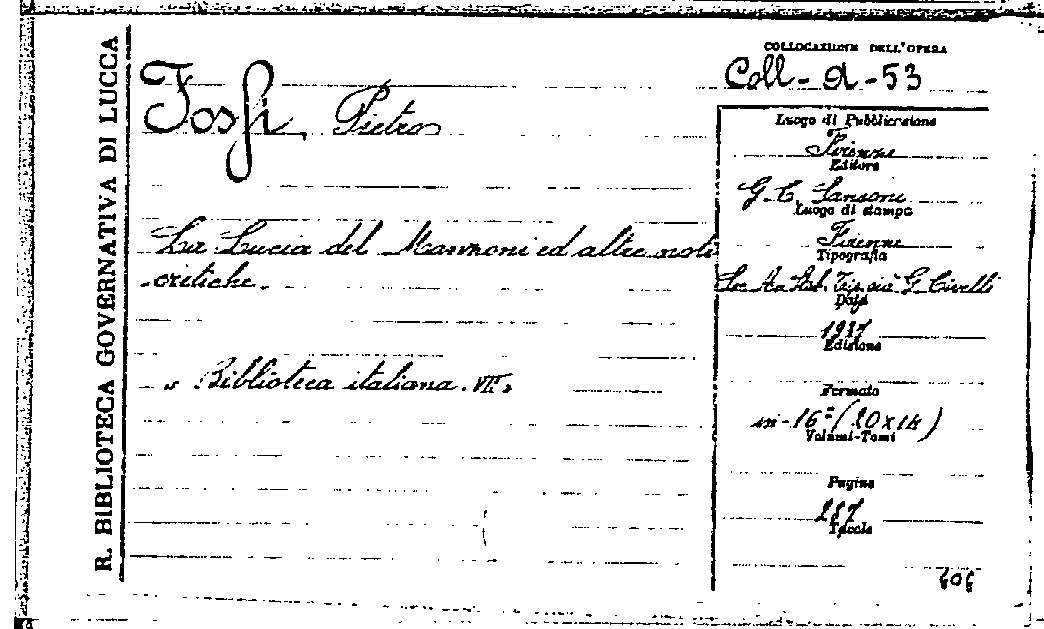 R. BIBLIOTECA GOVERNATIVA DI LUCCA
Fossi, Pietro
La Lucia del Manzoni ed altre note
critiche.
"Biblioteca italiana. VII"
COLLOCAZIONE DELL'OPERA
Coll-a-53
Luogo di Pubblicazione
Firenze
Editore
G. C. Sansoni
Luogo di stampa
Firenze
Tipografia
Tip. già G. Civelli
Data
1937
Edizione
Formato
in-16° (20x14)
Volumi-Tomi
Pagine
287
Tavole